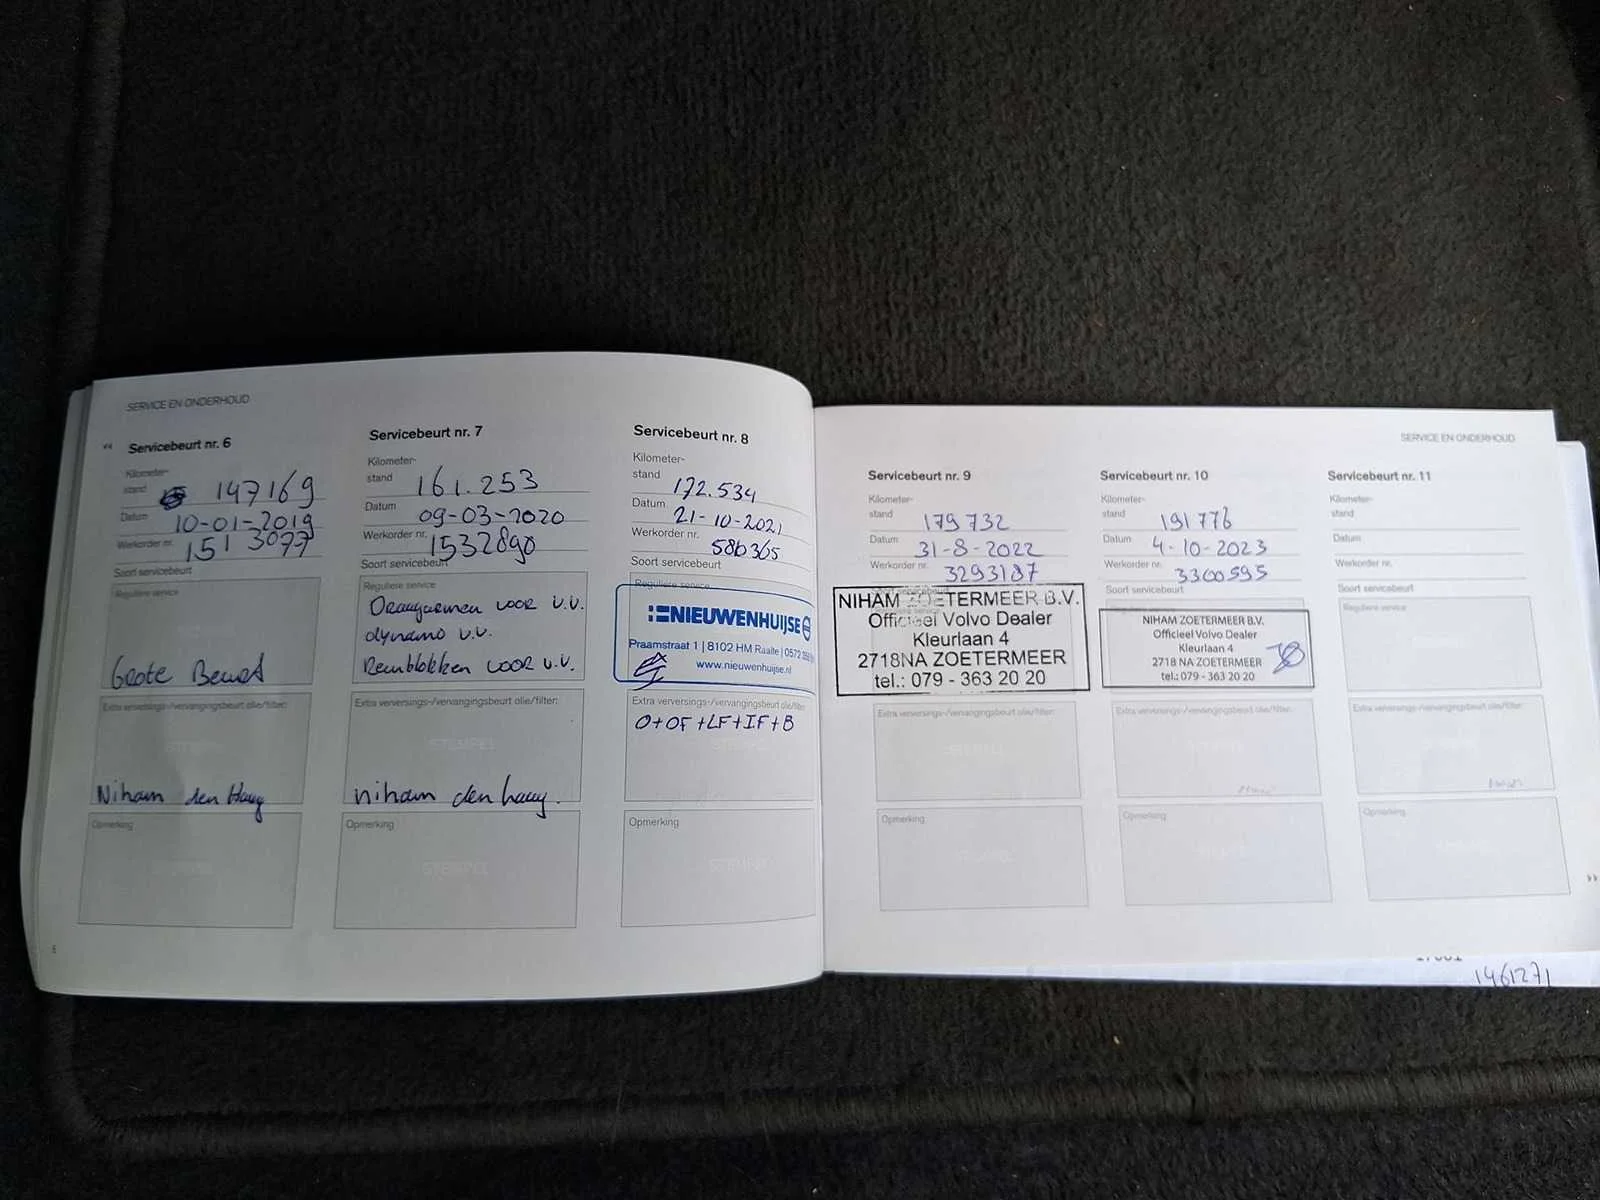 SERVICE EN ONDERHOUD
Servicebeurt nr. 6
Kilometer-
stand 147169
Datum 10-01-2019
Werkorder nr. 1513077
Soort servicebeurt
Reguliere service
Grote Beurt
Extra verversings-/vervangingsbeurt olie/filter:
Niham den Haag
Opmerking
STEMPEL
6
Servicebeurt nr. 7
Kilometer-
stand 161.253
Datum 09-03-2020
Werkorder nr. 1532890
Soort servicebeurt
Reguliere service
Draagarmen voor v.v.
dynamo v.v.
Remblokken voor v.v.
Extra verversings-/vervangingsbeurt olie/filter:
STEMPEL
niham den haag.
Opmerking
STEMPEL
Servicebeurt nr. 8
Kilometer-
stand 172.534
Datum 21-10-2021
Werkorder nr. 586365
Soort servicebeurt
Reguliere service
NIEUWENHUIJSE
Praamstraat 1 | 8102 HM Raalte | 0572
www.nieuwenhuijse.nl
Extra verversings-/vervangingsbeurt olie/filter:
O+OF+LF+IF+B
Opmerking
STEMPEL
SERVICE EN ONDERHOUD
Servicebeurt nr. 9
Kilometer-
stand 179732
Datum 31-8-2022
Werkorder nr. 3293187
NIHAM ZOETERMEER B.V.
Officieel Volvo Dealer
Kleurlaan 4
2718NA ZOETERMEER
tel.: 079 - 363 20 20
Extra verversings-/vervangingsbeurt olie/filter:
STEMPEL
Opmerking
STEMPEL
Servicebeurt nr. 10
Kilometer-
stand 191776
Datum 4-10-2023
Werkorder nr. 3300595
Soort servicebeurt
NIHAM ZOETERMEER B.V.
Officieel Volvo Dealer
Kleurlaan 4
2718 NA ZOETERMEER
tel.: 079 - 363 20 20
Extra verversings-/vervangingsbeurt olie/filter:
Opmerking
Servicebeurt nr. 11
Kilometer-
stand
Datum
Werkorder nr.
Soort servicebeurt
Reguliere service
Extra verversings-/vervangingsbeurt olie/filter:
Opmerking
1461271